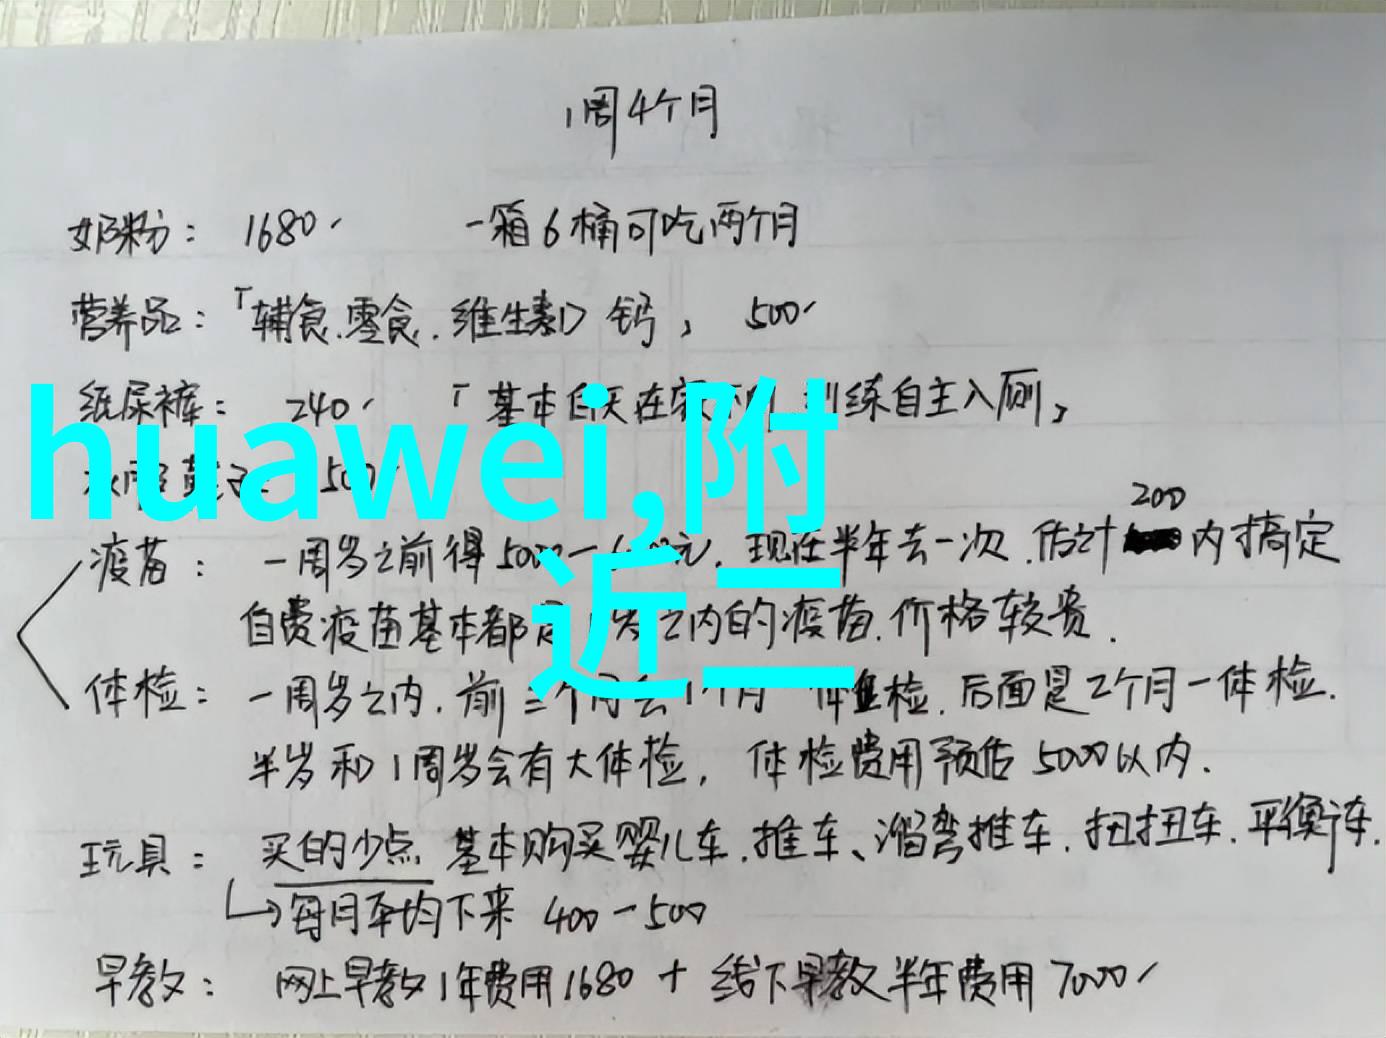 1周4个月
奶粉： 1680、 一箱6桶可吃两个月
营养品：「辅食.零食.维生素D 钙」 500、
纸尿裤： 240、 「基本白天在家 训练自主入厕」
huawei,附
500、
200
疫苗： 一周岁之前得 5000 元. 现在半年去一次.估计 内搞定
近二
自费疫苗基本都 岁之内的疫苗.价格较贵.
体检： 一周岁之内.前三个月 1个月一体检.后面是2个月一体检.
半岁和1周岁会有大体检， 体检费用预估5000以内.
玩具： 买的少点 基本购买婴儿车.推车、溜弯推车.扭扭车.平衡车.
↳每月平均下来 400-500
早教： 网上早教1年费用1680 + 线下早教半年费用7000、